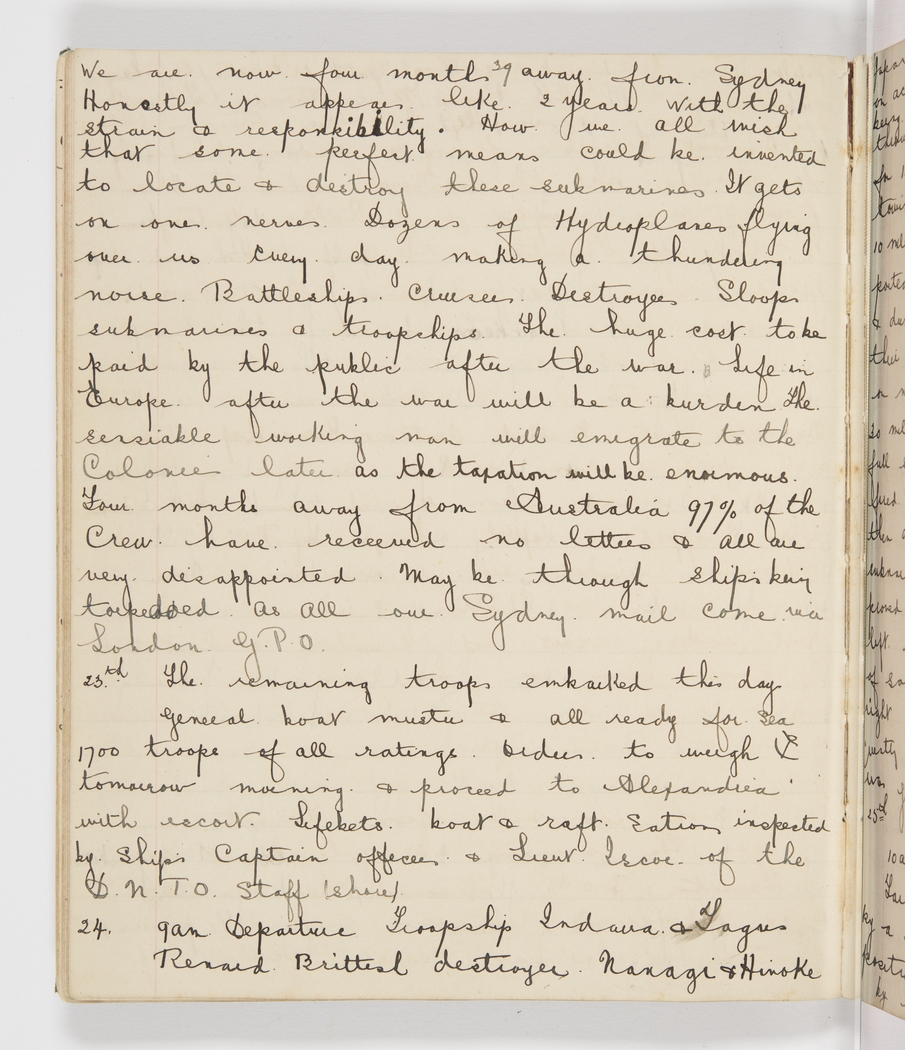 We are. now. four months 39 away. from. Sydney
Honestly it appears. like. 2 years. with the
strain & responsibility. How. we. all wish
that some. perfect means could be. invented
to locate & destroy these submarines. It gets
on ones. nerves. Dozens of Hydroplanes flying
over. us every. day. making a. thundering
noise. Battleships. Cruisers. Destroyers. Sloops
submarines & troopships. The. huge cost. to be
paid by the public after the war. Life in
Europe. after the war will be a burden The.
sensiable working man will emigrate to the
Colonies later as the taxation will be. enormous.
Four. months away from Australia 97% of the
Crew. have. received no letters & all are
very. disappointed. May be. through ships being
torpedoed. as all our. Sydney. mail come. via
London. G.P.O.
23.rd The. remaining troops embarked this day
General. boat muster & all ready for. sea
1700 troops of all ratings. Orders. to weigh
tomorrow morning. & proceed to Alexandria
with escort. Lifebelts. boat & raft. Stations inspected
by. Ships Captain officers. & Lieut. of the
D.N.T.O. Staff (shore)
24. 9am Departure Troopship Indarra. & Tagus
Renard. Brittish destroyer. Nanagi & Hinoke